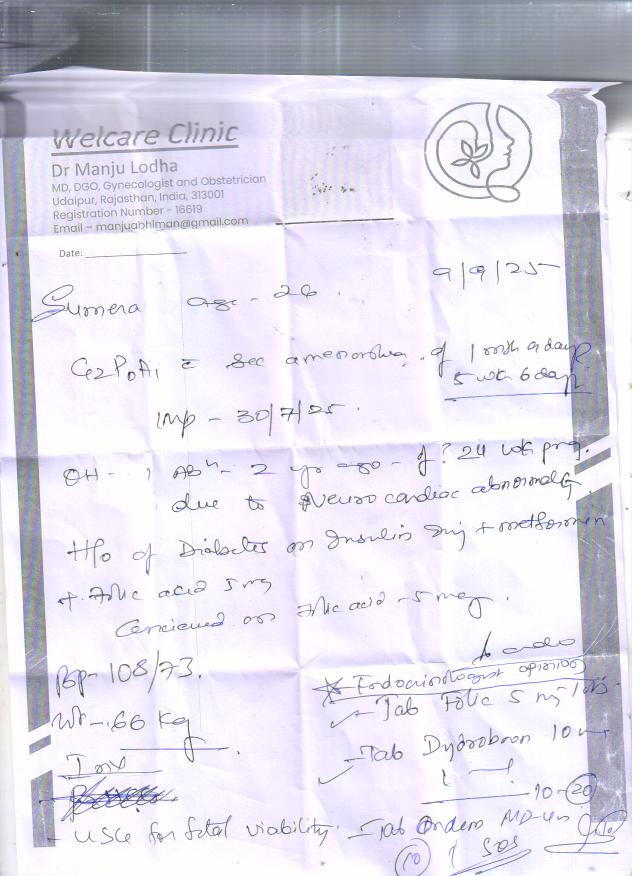 Welcare Clinic
Dr Manju Lodha
MD, DGO, Gynecologist and Obstetrician
Udaipur, Rajasthan, India, 313001
Registration Number - 16619
Email – manjuabhiman@gmail.com
Date:
9/9/25
Sumera age - 26
G2P0A1 c sec amenorrhea of 1 mth 9 days
5 wk 6 days
LMP - 30/7/25.
OH - 1 Abn - 2 yr ago - of ? 24 wk preg.
due to Neuro cardiac abnormality
H/o of Diabetes on Insulin inj + metformin
+ Folic acid 5 mg
Concieved on Folic acid - 5 mg.
Endocrinologist opinion
BP - 108/73.
Tab Folic 5 mg
Wt - 66 kg
Tab Dydroboon 10
Inv
10 - 20
- USG for fetal viability
- Tab Ondem MD-4
10 SOS